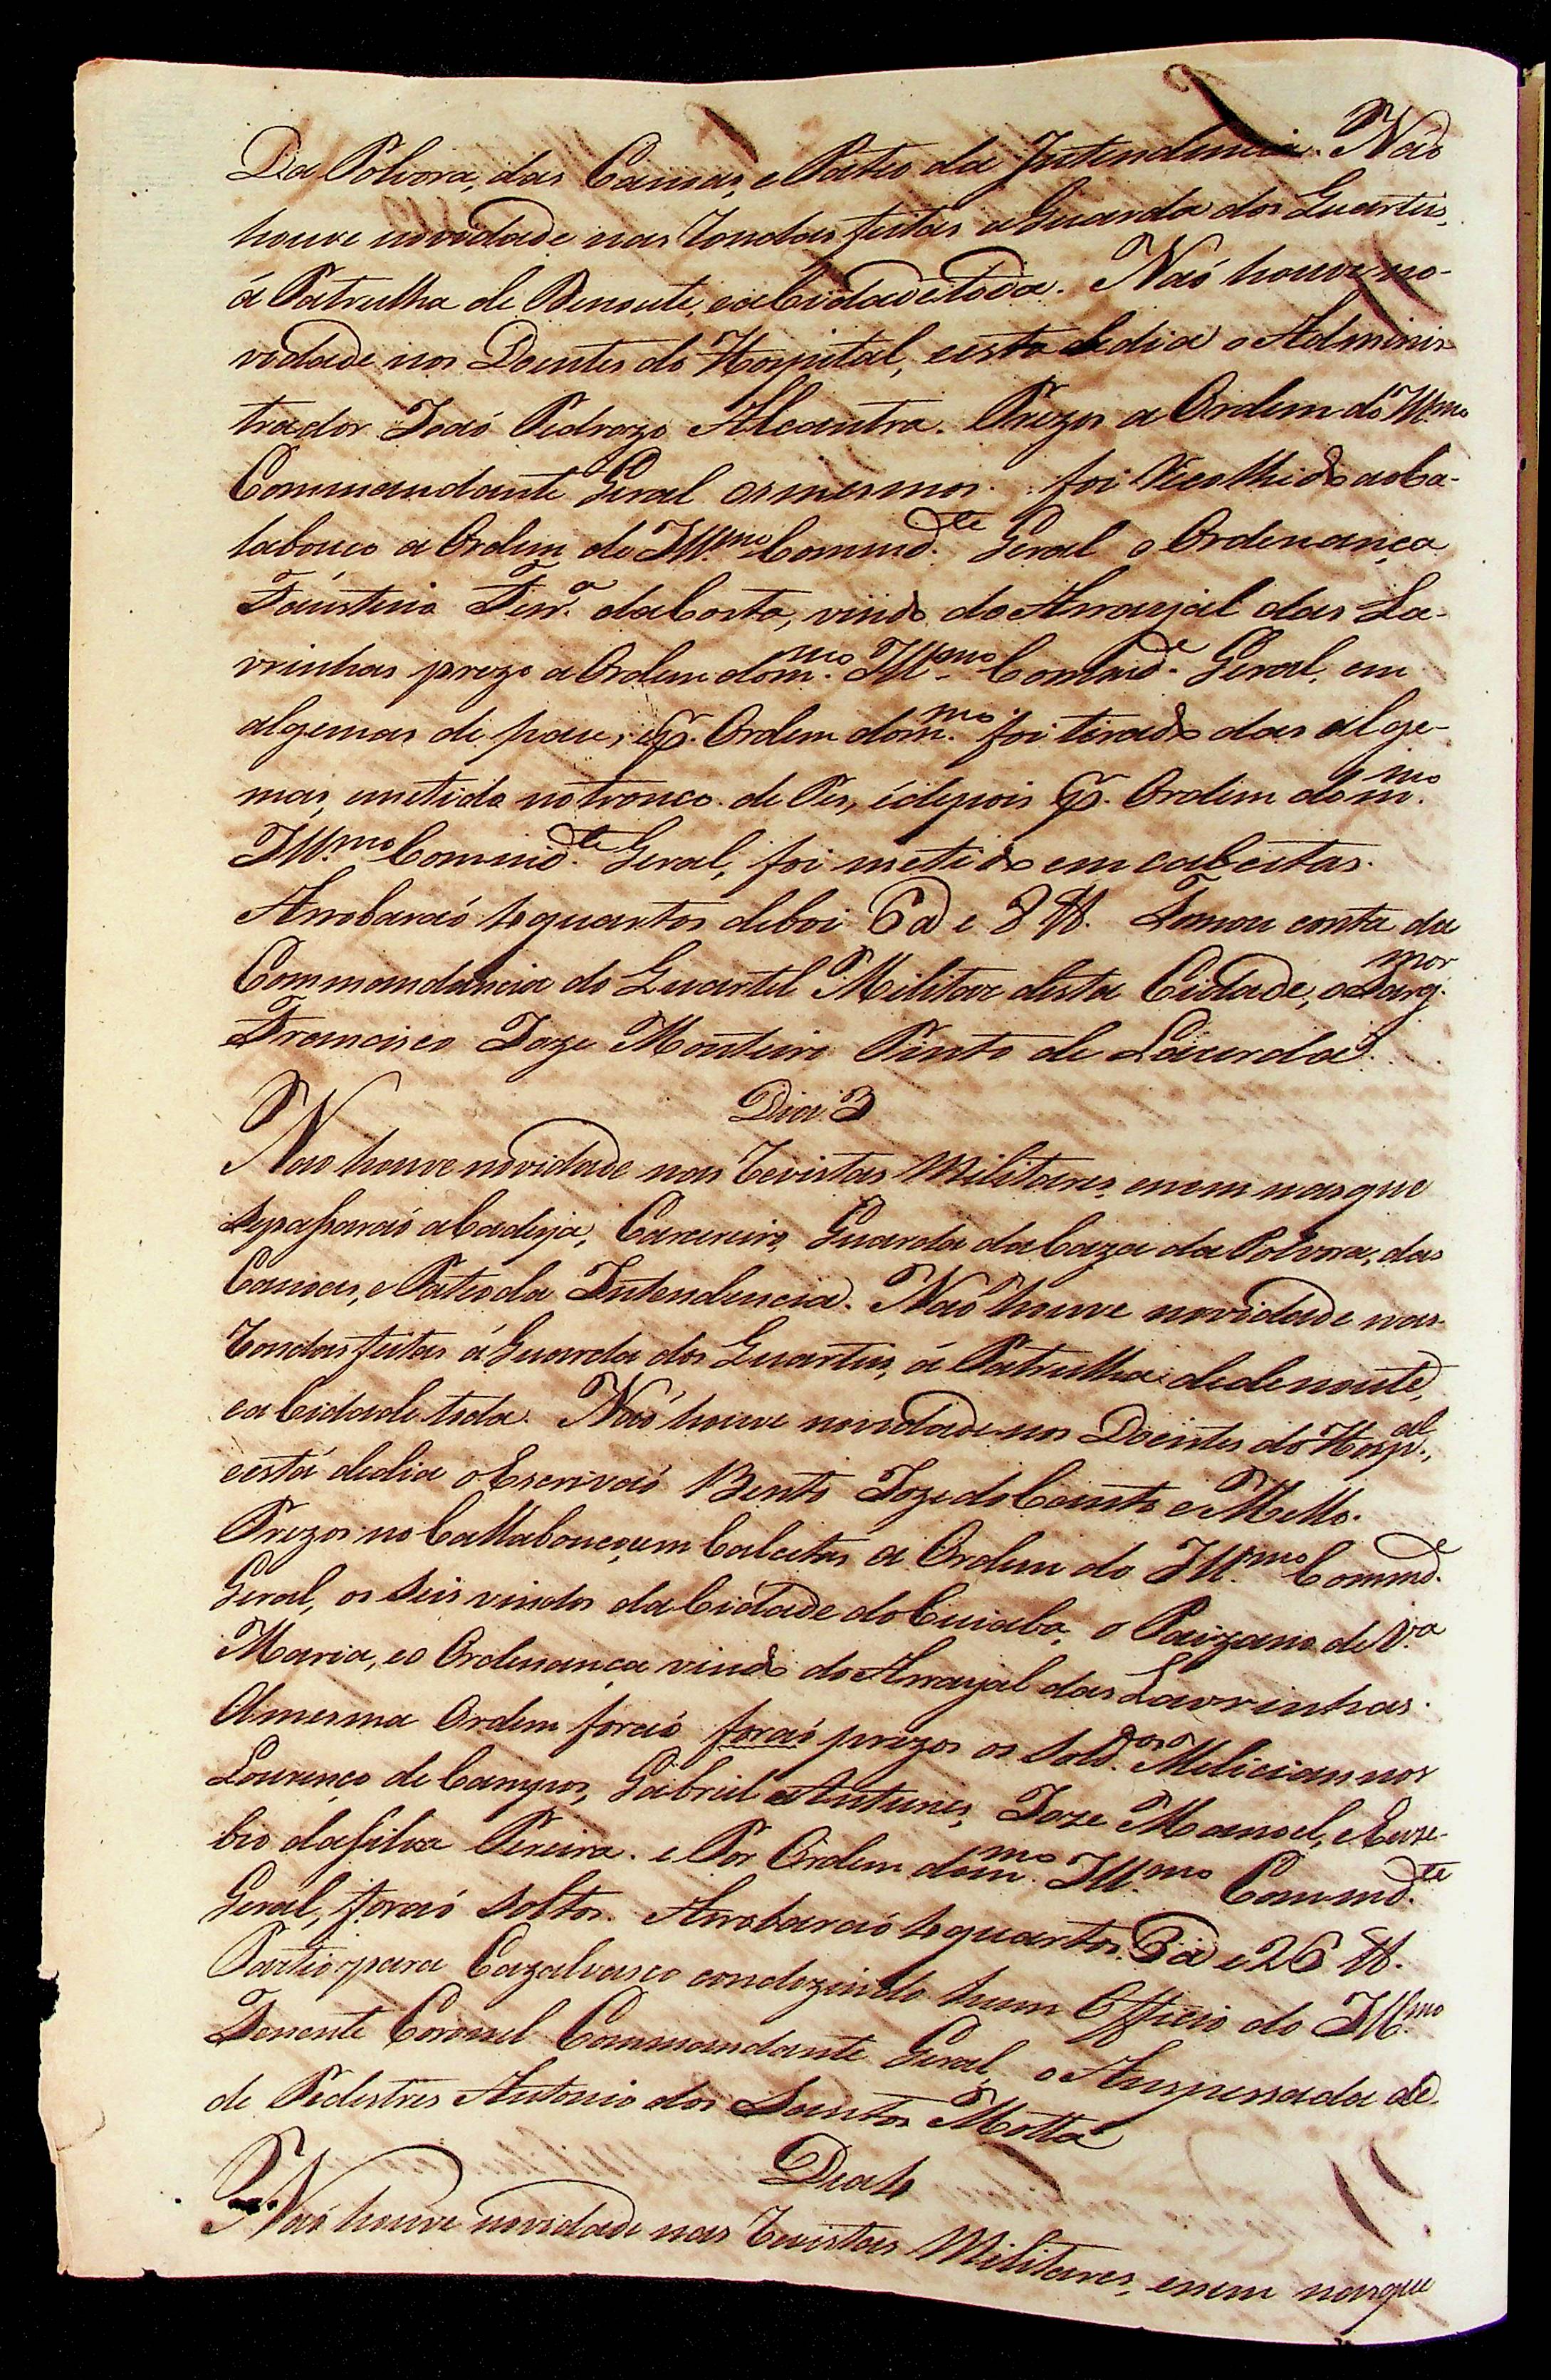 Da Polvora, das Canoas, e Pateo da Intendencia. Naõ
houve novidade nas rondas feitas a Guarda dos Quarteis,
á Patrulha de Denoute, eaCidadetoda. Naõ houve no-
vidade nos Doentes do Hospital, eesta dedia o Adminis-
trador Joaõ Pedrozo Alcantra. Prezos a Ordem do Ill.mo
Commandante Geral osmesmos. foi Recolhido aoCa-
labouco a Ordem do Ill.mo Commd.te Geral o Ordenança
Faustino Ferr.a daCosta, vindo do Arrayal das La-
vrinhas prezo a Ordem dom.mo Ill.mo Commd.e Geral, em
algemas de pau, e P. Ordem dom.mo foi tirado das alge-
mas, emetido notronco de Pes, edepois P. Ordem do m.mo
Ill.mo Commd.te Geral, foi metido em calcetas.
Arrobaraõ 4 quartos deboi 6 @ e 8 ℔. Tomou conta da
Commandancia do Quartel Militar desta Cidade, o Sarg.mor
Francisco Joze Monteiro Pinto de Lacerda.
Dia 3
Naõ houve novidade nas revistas Militares, enem nasque
sepassaraõ aCadeya, Carcereiro, Guarda daCaza da Polvora, das
Canoas, e Pateo da Intendencia. Naõ houve novidade nas
rondas feitas á Guarda dos Quarteis, á Patrulha dedenoute,
eaCidade toda. Naõ houve novidade nos Doentes do Hosp.al,
eestá dedia oEscrivaõ Bento Joze do Couto e Mello.
Prezos no Callabouco, em Calcetas a Ordem do Ill.mo Commd.e
Geral, os seis vindos da Cidade do Cuiaba, o Paizano de V.a
Maria, eo Ordenança vindo do Arrayal das Lavrinhas.
Amesma Ordem foraõ foraõ prezos os Sold.dos Milicianos
Lourenço de Campos, Gabriel Antunes, Joze Manoel, e Euze-
bio da Silva Pereira. e Por Ordem dom.mo Ill.mo Commd.te
Geral, foraõ soltos. Arrobaraõ 4 quartos 3 @ e 26 ℔.
Partio para Cazalvasco conduzindo hum Officio do Ill.mo
Tenente Coronel Commandante Geral, o Anspessada de
de Pedestres Antonio dos Santos Motta
Dia 4
Naõ houve novidade nas revistas Militares, enem nasque